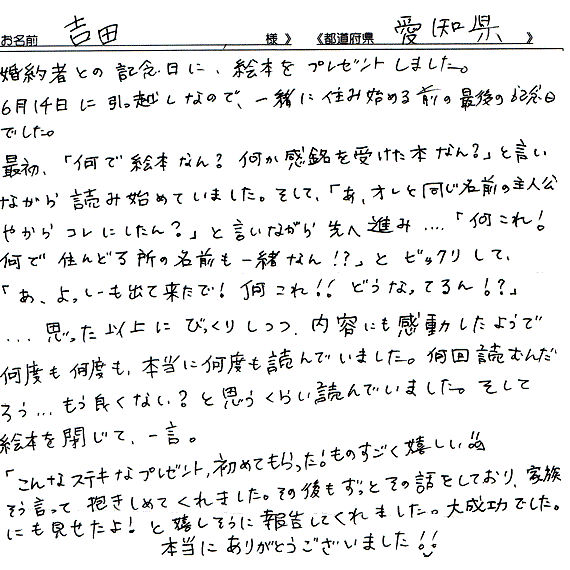 お名前 吉田 様 》 《都道府県 愛知県 》
婚約者との記念日に、絵本をプレゼントしました。
6月14日に引っ越しなので、一緒に住み始める前の最後の記念日
でした。
最初、「何で絵本なん？何か感銘を受けた本なん？」と言い
ながら読み始めていました。そして、「あ、オレと同じ名前の主人公
やからコレにしたん？」と言いながら先へ進み....「何これ！
何で住んどる所の名前も一緒なん!?」とビックリして、
「あ、よっしーも出て来たで！何これ!!どうなってるん!?」
...思った以上にびっくりしつつ、内容にも感動したようで
何度も何度も、本当に何度も読んでいました。何回読むんだ
ろう...もう良くない？と思うくらい読んでいました。そして
絵本を閉じて、一言。
「こんなステキなプレゼント、初めてもらった！ものすごく嬉しい」
そう言って抱きしめてくれました。その後もずっとその話をしており、家族
にも見せたよ！と嬉しそうに報告してくれました。大成功でした。
本当にありがとうございました!!